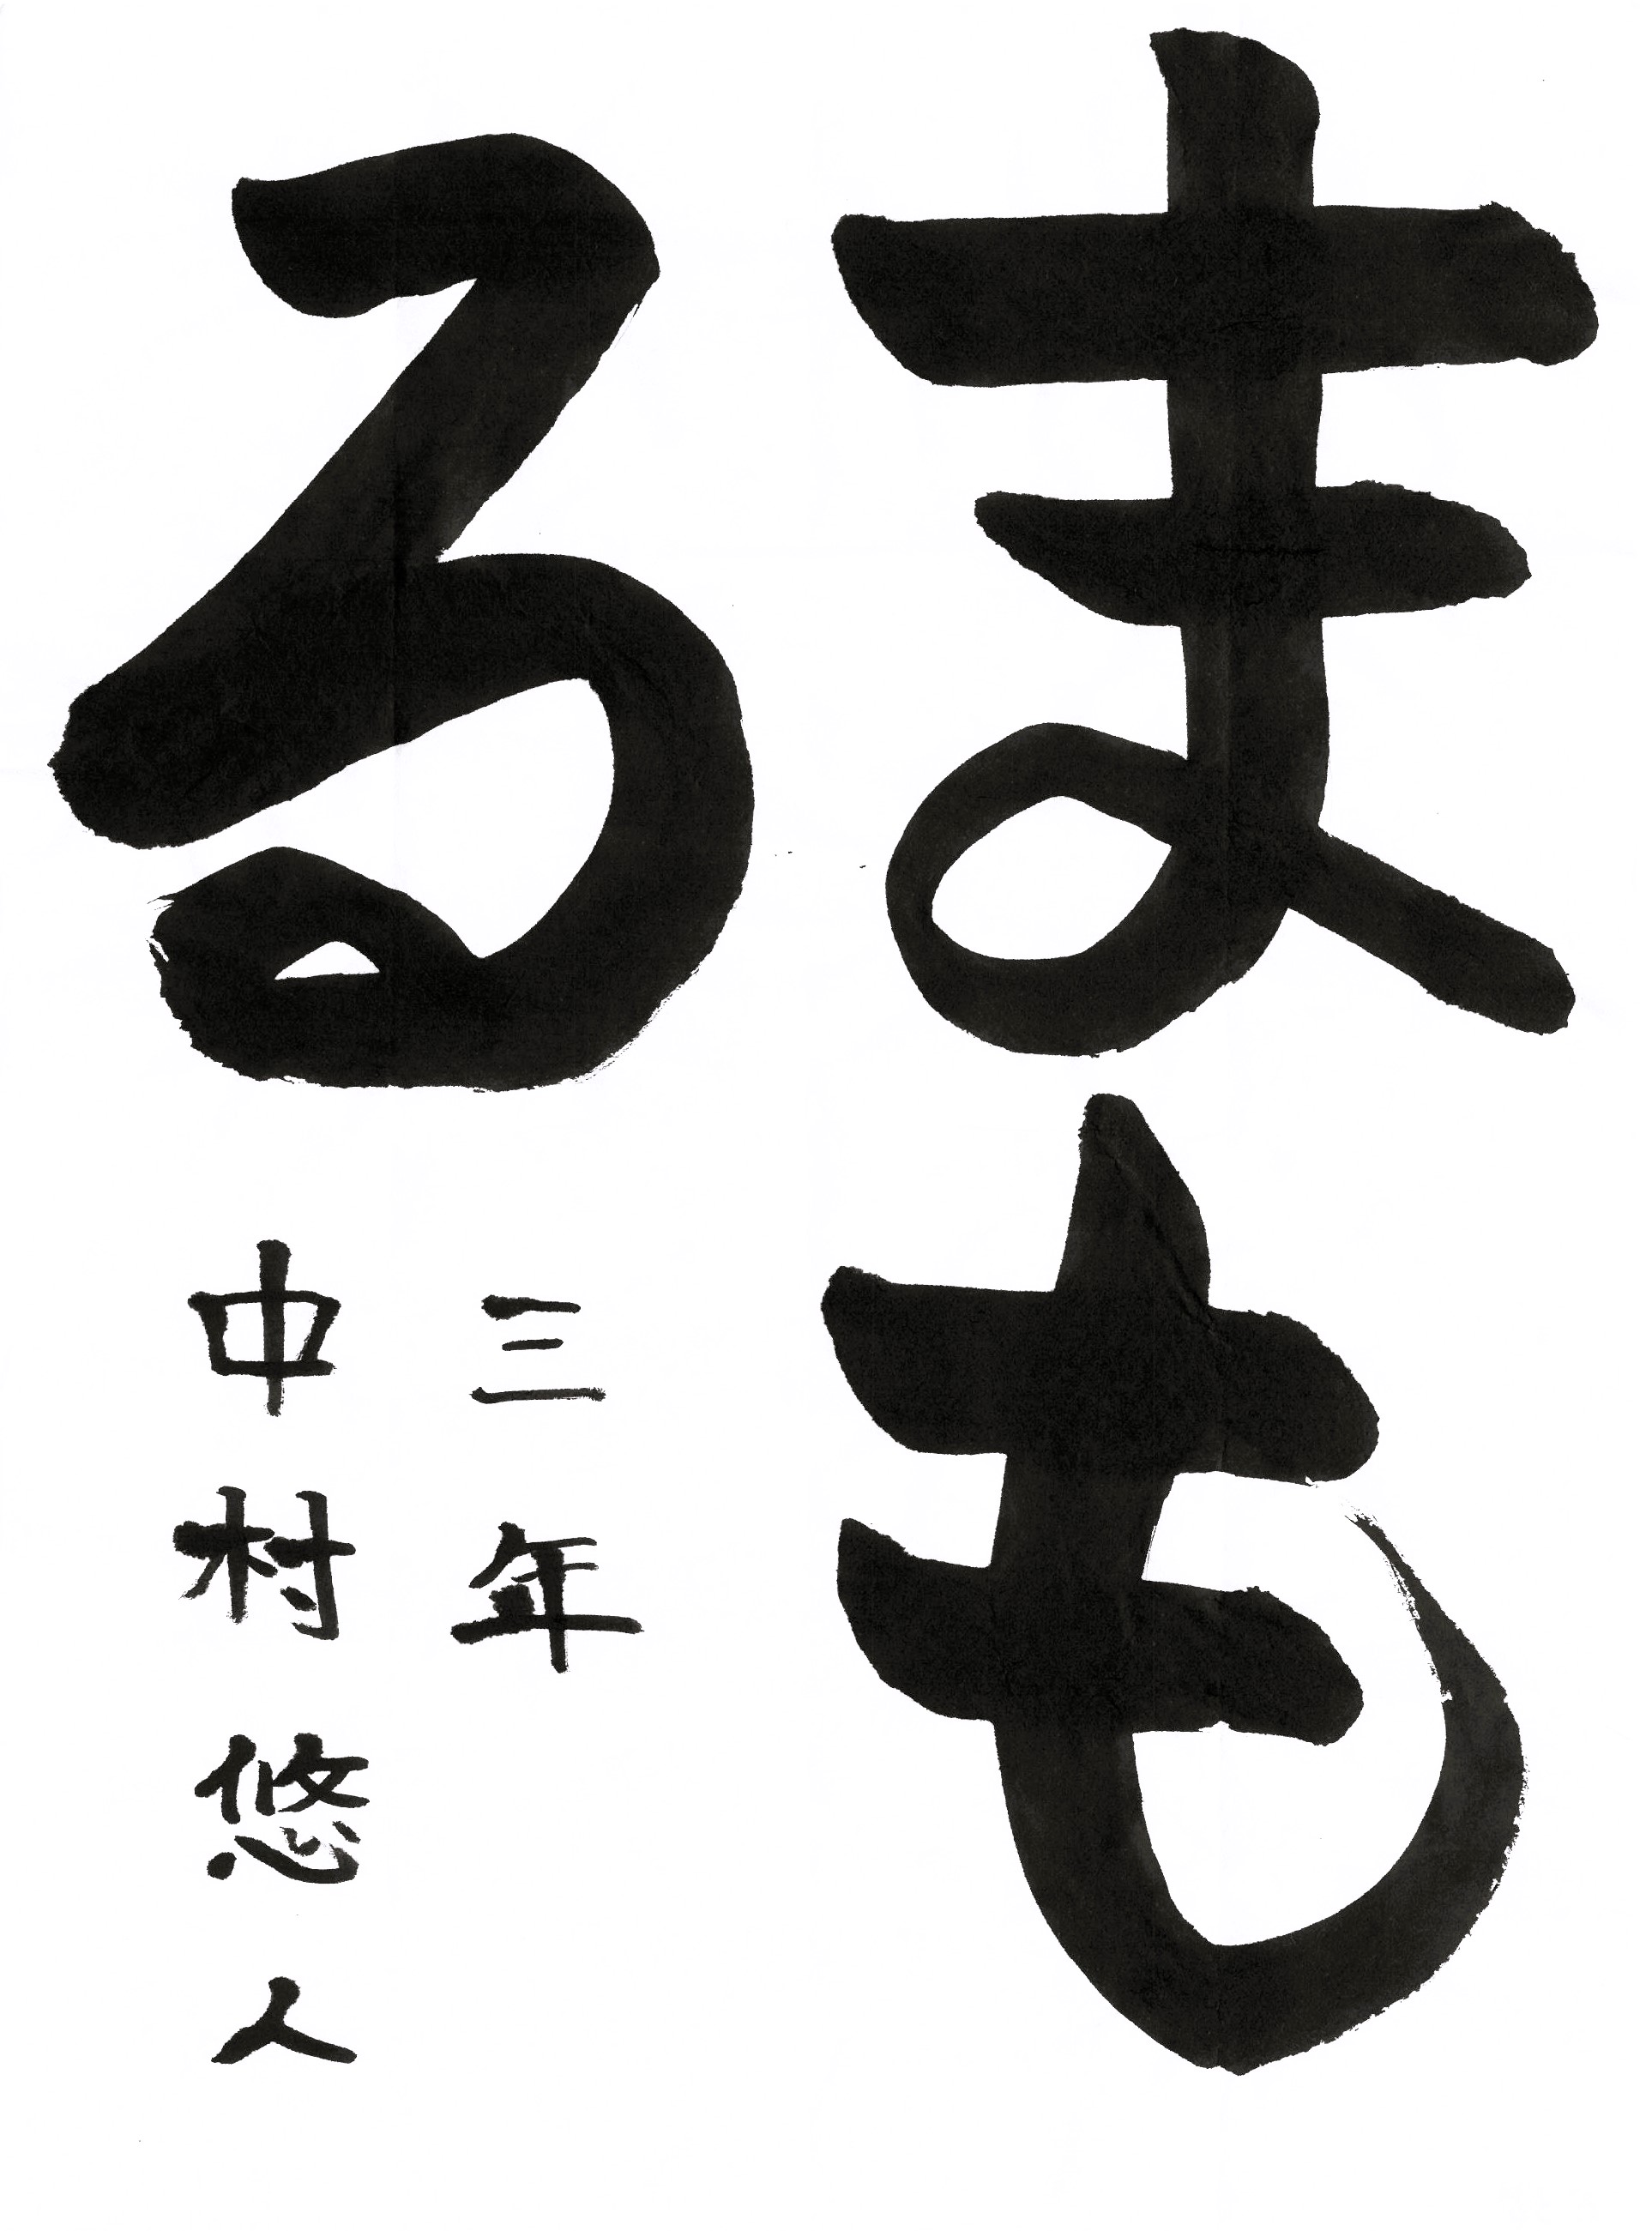 まも
る
三年
中村悠人